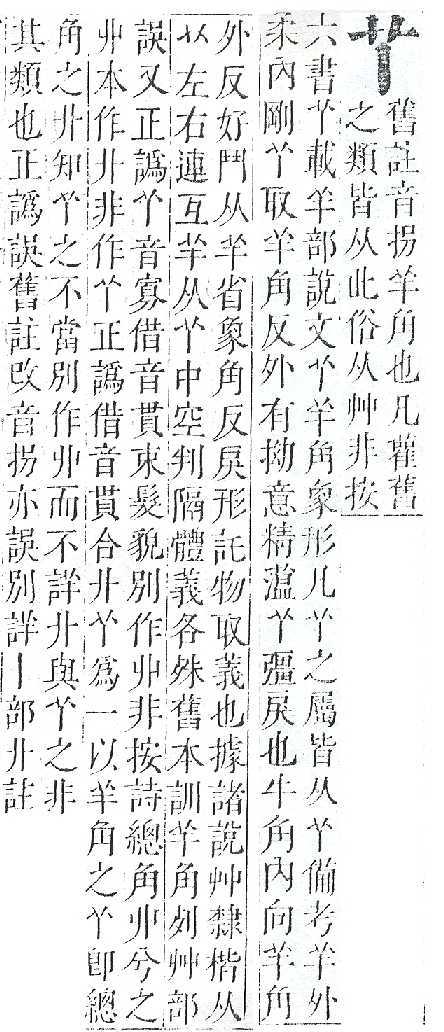 𦫳
舊註音拐羊角也凡雚舊
之類皆从此俗从艸非按
六書𦫳載羊部說文𦫳羊角象形凡𦫳之屬皆从𦫳備考羊外
柔內剛𦫳取羊角反外有拗意精薀𦫳彊戾也牛角內向羊角
外反好鬥从羊省象角反戾形託物取義也據諸說艸隸楷从
左右連互羊从𦫳中空判隔體義各殊舊本訓羊角列艸部
誤又正譌𦫳音寡借音貫束髮貌別作丱非按詩總角丱兮之
丱本作卝非作𦫳正譌借音貫合卝𦫳爲一以羊角之𦫳卽總
角之卝知𦫳之不當別作丱而不詳卝與𦫳之非
其類也正譌誤舊註改音拐亦誤別詳丨部卝註